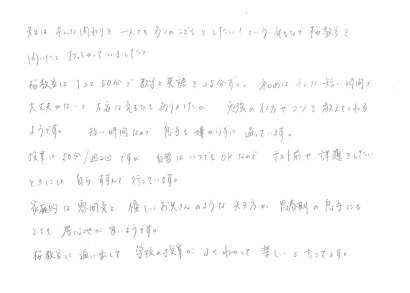 先生は そんな関わりを 一人でも多くのこどもとしたい！という 気もちで 桜教室を
開いたと おっしゃっていました。
桜教室は 1コマ50分で 数学と英語を25分ずつ。 初めは そんな短い時間で
大丈夫かな…と 不安な気もちもありましたが、 勉強の仕方やコツを教えてくれる
ようです。 短い時間なので 息子も嫌がらずに通っています。
授業は 50分/週2回ですが 自習はいつでもOKなので テスト前や課題をしたい
ときには 自ら進んで行っています。
家庭的な雰囲気と 優しいお兄さんのような先生方が 思春期の息子にも
とても居心地が良いようです。
桜教室に通い出して 学校の授業が よくわかって楽しいと言ってます。